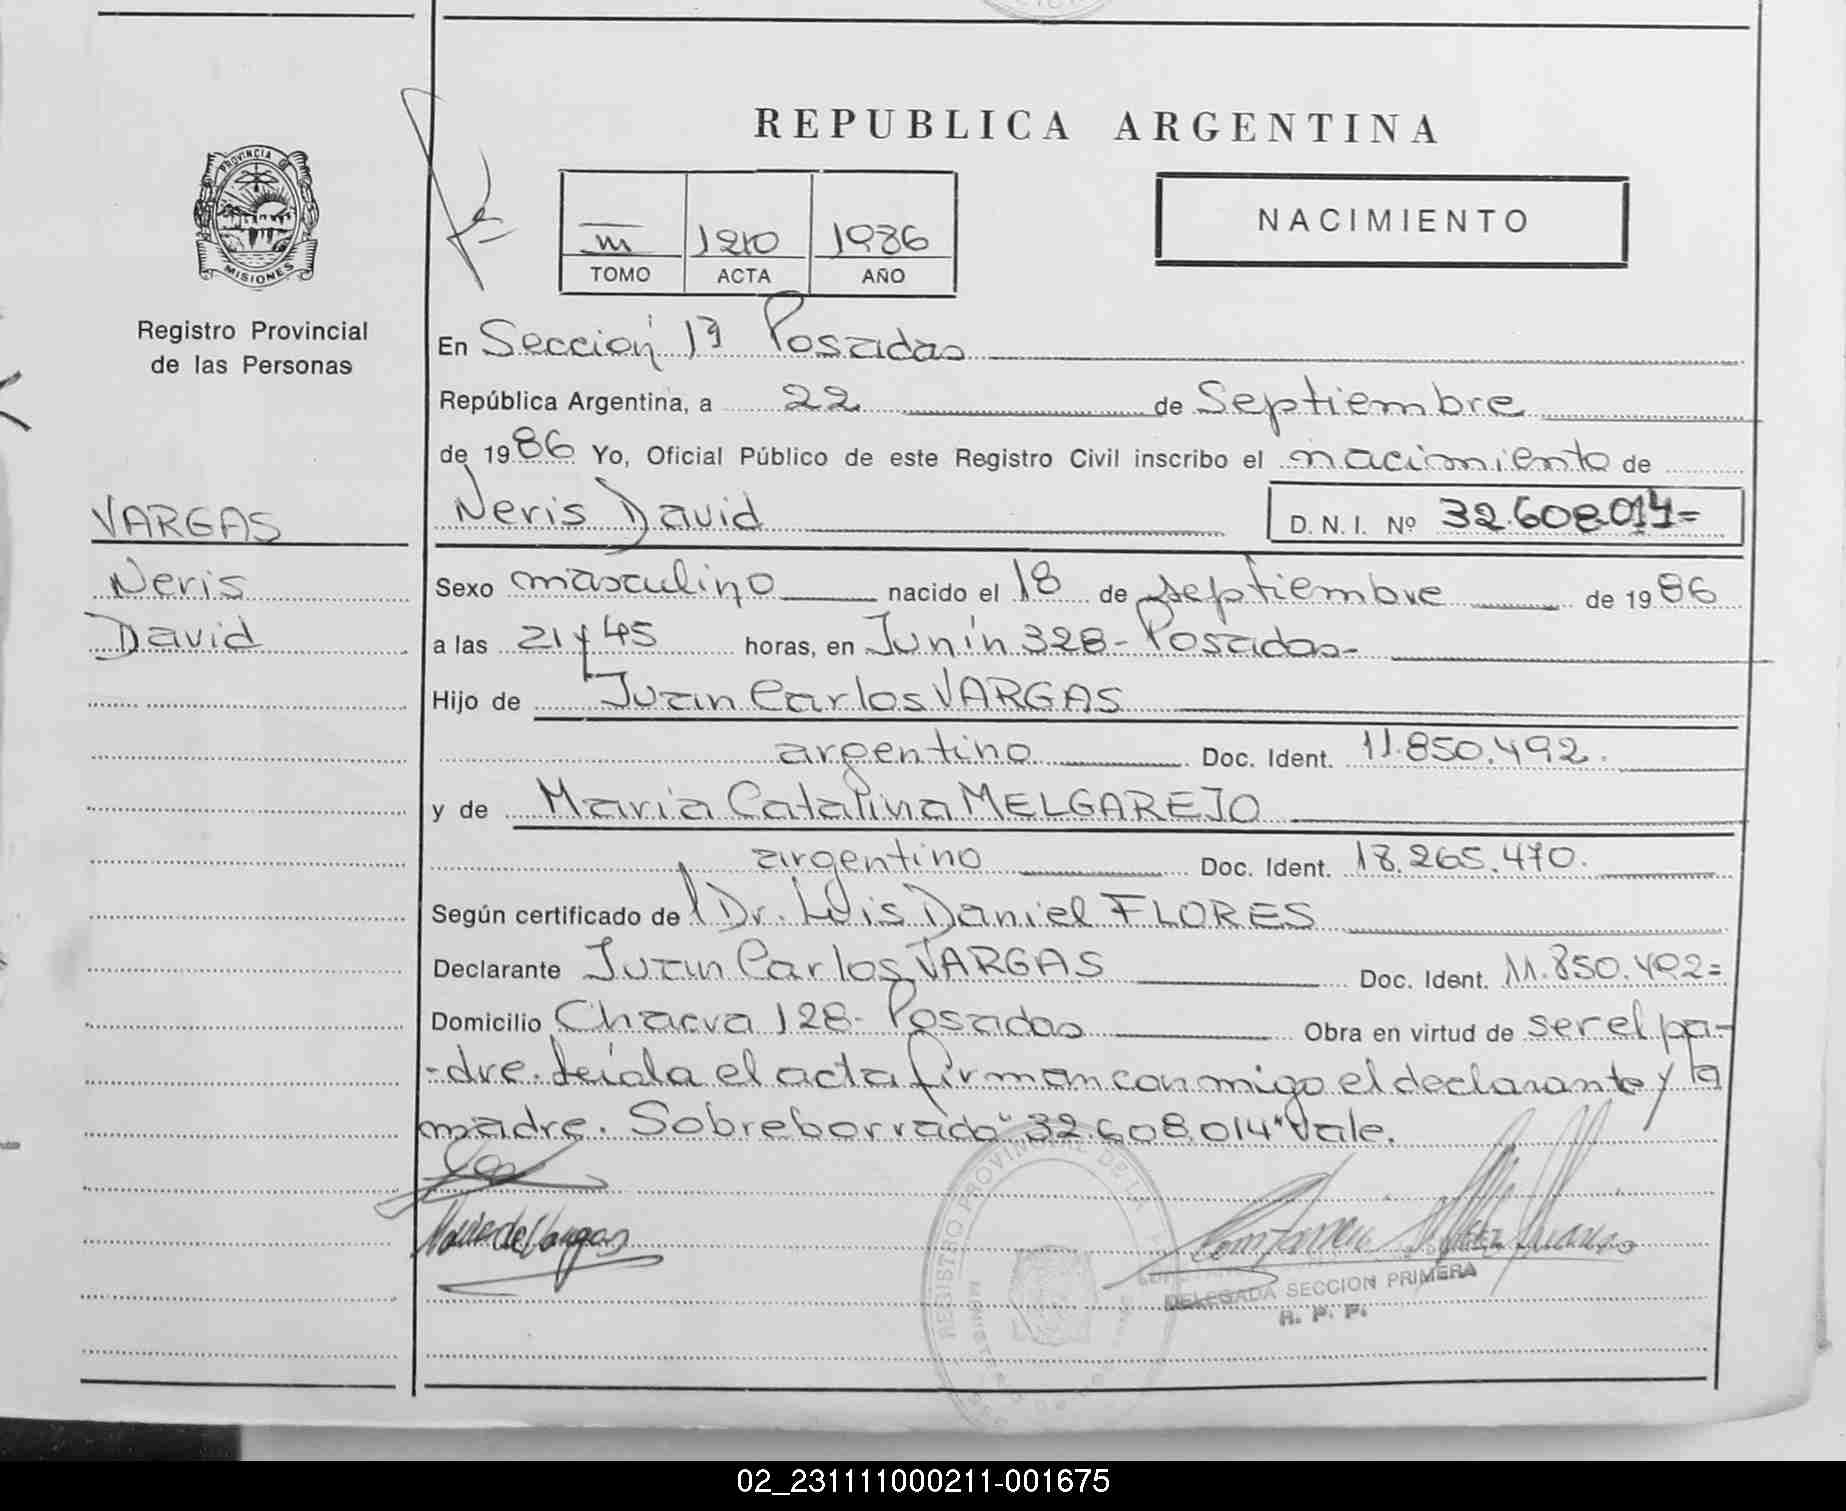 REPUBLICA ARGENTINA
PROVINCIA DE
MISIONES
Registro Provincial
de las Personas
III 1210 1986
TOMO ACTA AÑO
NACIMIENTO
VARGAS
Neris
David
En Sección 1ª Posadas
República Argentina, a 22 de Septiembre
de 1986 Yo, Oficial Público de este Registro Civil inscribo el nacimiento de
Neris David D.N.I. Nº 32.608.014=
Sexo masculino nacido el 18 de septiembre de 1986
a las 21 y 45 horas, en Junín 328- Posadas-
Hijo de Juan Carlos VARGAS
argentino Doc. Ident. 11.850.492.
y de Maria Catalina MELGAREJO
argentino Doc. Ident. 18.265.470.
Según certificado del Dr. Luis Daniel FLORES
Declarante Juan Carlos VARGAS Doc. Ident. 11.850.492=
Domicilio 128- Posadas Obra en virtud de ser el pa-
-dre. Leída el acta firman conmigo el declarante y la
madre. Sobreborrado "32.608.014" Vale.
Maria de Vargas
REGISTRO PROVINCIAL DE LA
DELEGADA SECCION PRIMERA
R. P. P.
02_231111000211-001675